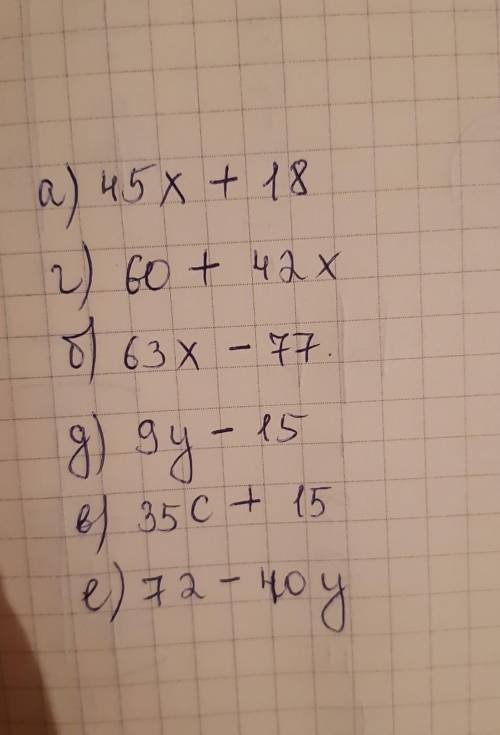 а) 45x + 18
г) 60 + 42x
б) 63x - 77.
д) 9y - 15
в) 35c + 15
е) 72 - 40y